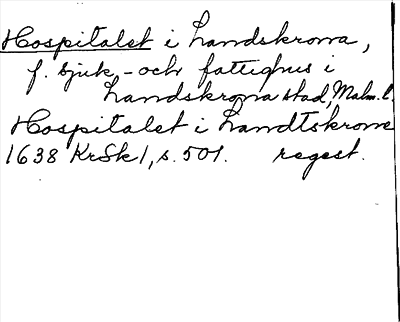 Hospitalet i Landskrona,
f. sjuk- och fattighus i
Landskrona stad, Malm. l.
Hospitalet i Landtskrone
1638 KrSk 1, s. 501. regest.